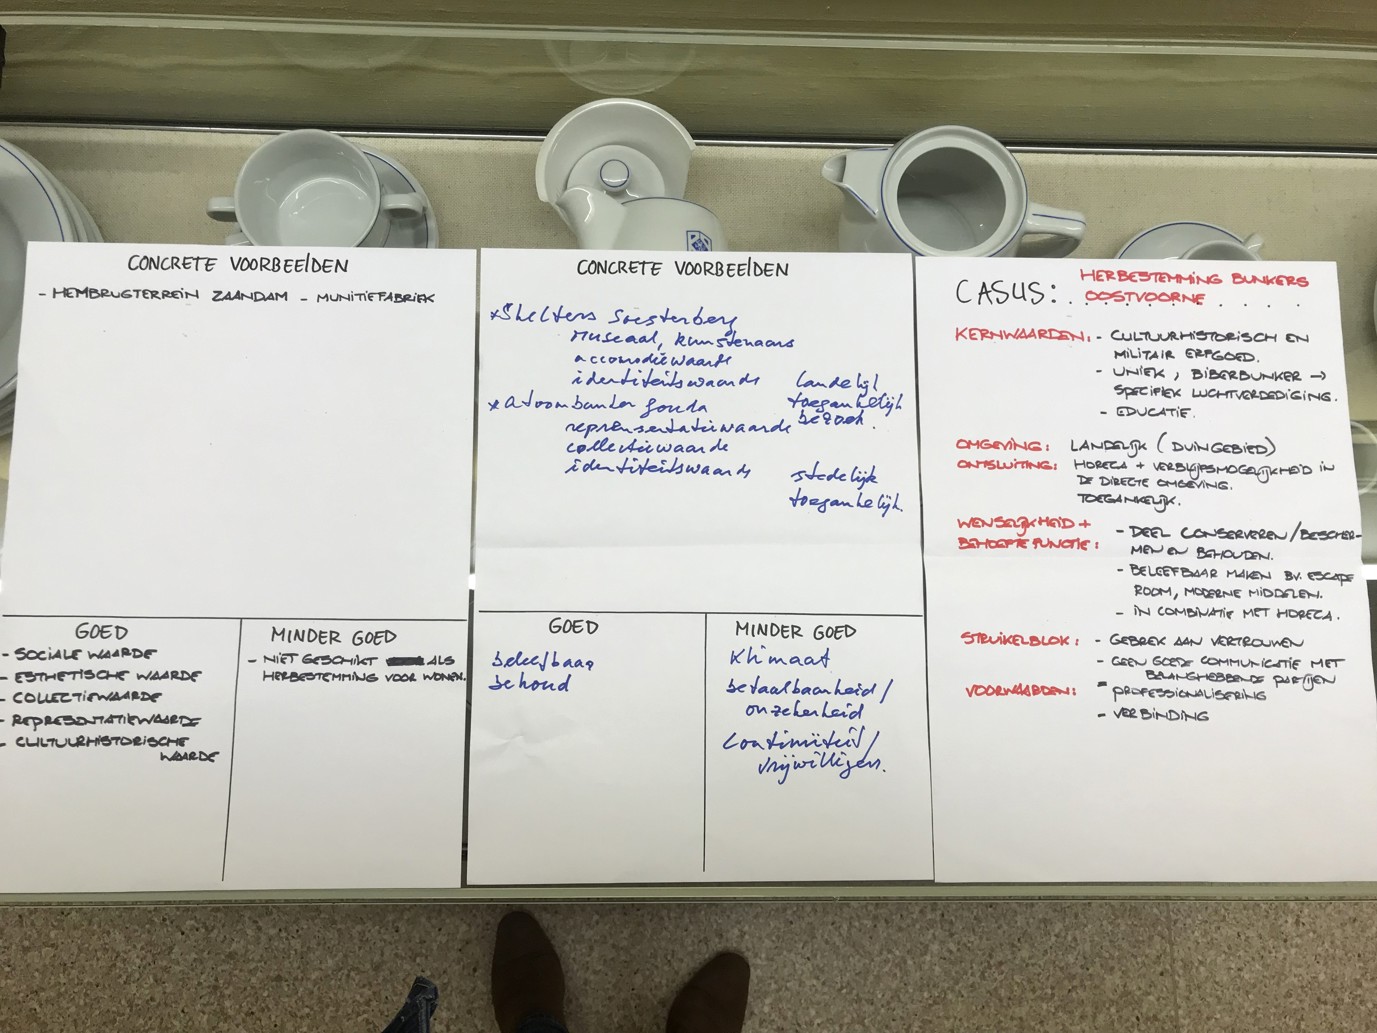 CONCRETE VOORBEELDEN
- HEMBRUGTERREIN ZAANDAM - MUNITIEFABRIEK
GOED
- SOCIALE WAARDE
- ESTHETISCHE WAARDE
- COLLECTIEWAARDE
- REPRESENTATIEWAARDE
- CULTUURHISTORISCHE
WAARDE
MINDER GOED
- NIET GESCHIKT ALS
HERBESTEMMING VOOR WONEN.
CONCRETE VOORBEELDEN
* Shelters Soesterberg
museaal, kunstenaars
accomodiewaarde
identiteitswaarde
landelijk
toegankelijk
bezoek.
* Atoombunker Gouda
reprensentatiewaarde
collectiewaarde
identiteitswaarde
stedelijk
toegankelijk.
GOED
beleefbaar
behoud
MINDER GOED
Klimaat
betaalbaarheid/
onzekerheid
Continuïteit/
vrijwilligers.
CASUS: HERBESTEMMING BUNKERS
OOSTVOORNE
KERNWAARDEN: - CULTUURHISTORISCH EN
MILITAIR ERFGOED.
- UNIEK, BIBERBUNKER →
SPECIFIEK LUCHTVERDEDIGING.
- EDUCATIE.
OMGEVING: LANDELIJK (DUINGEBIED)
ONTSLUITING: HORECA + VERBLIJFSMOGELIJKHEID IN
DE DIRECTE OMGEVING.
TOEGANKELIJK.
WENSELIJKHEID +
BEHOEFTE FUNCTIE:
- DEEL CONSERVEREN/BESCHER-
MEN EN BEHOUDEN.
- BELEEFBAAR MAKEN BV. ESCAPE
ROOM, MODERNE MIDDELEN.
- IN COMBINATIE MET HORECA.
STRUIKELBLOK: - GEBREK AAN VERTROUWEN
- GEEN GOEDE COMMUNICATIE MET
BELANGHEBBENDE PARTIJEN
VOORWAARDEN: - PROFESSIONALISERING
- VERBINDING